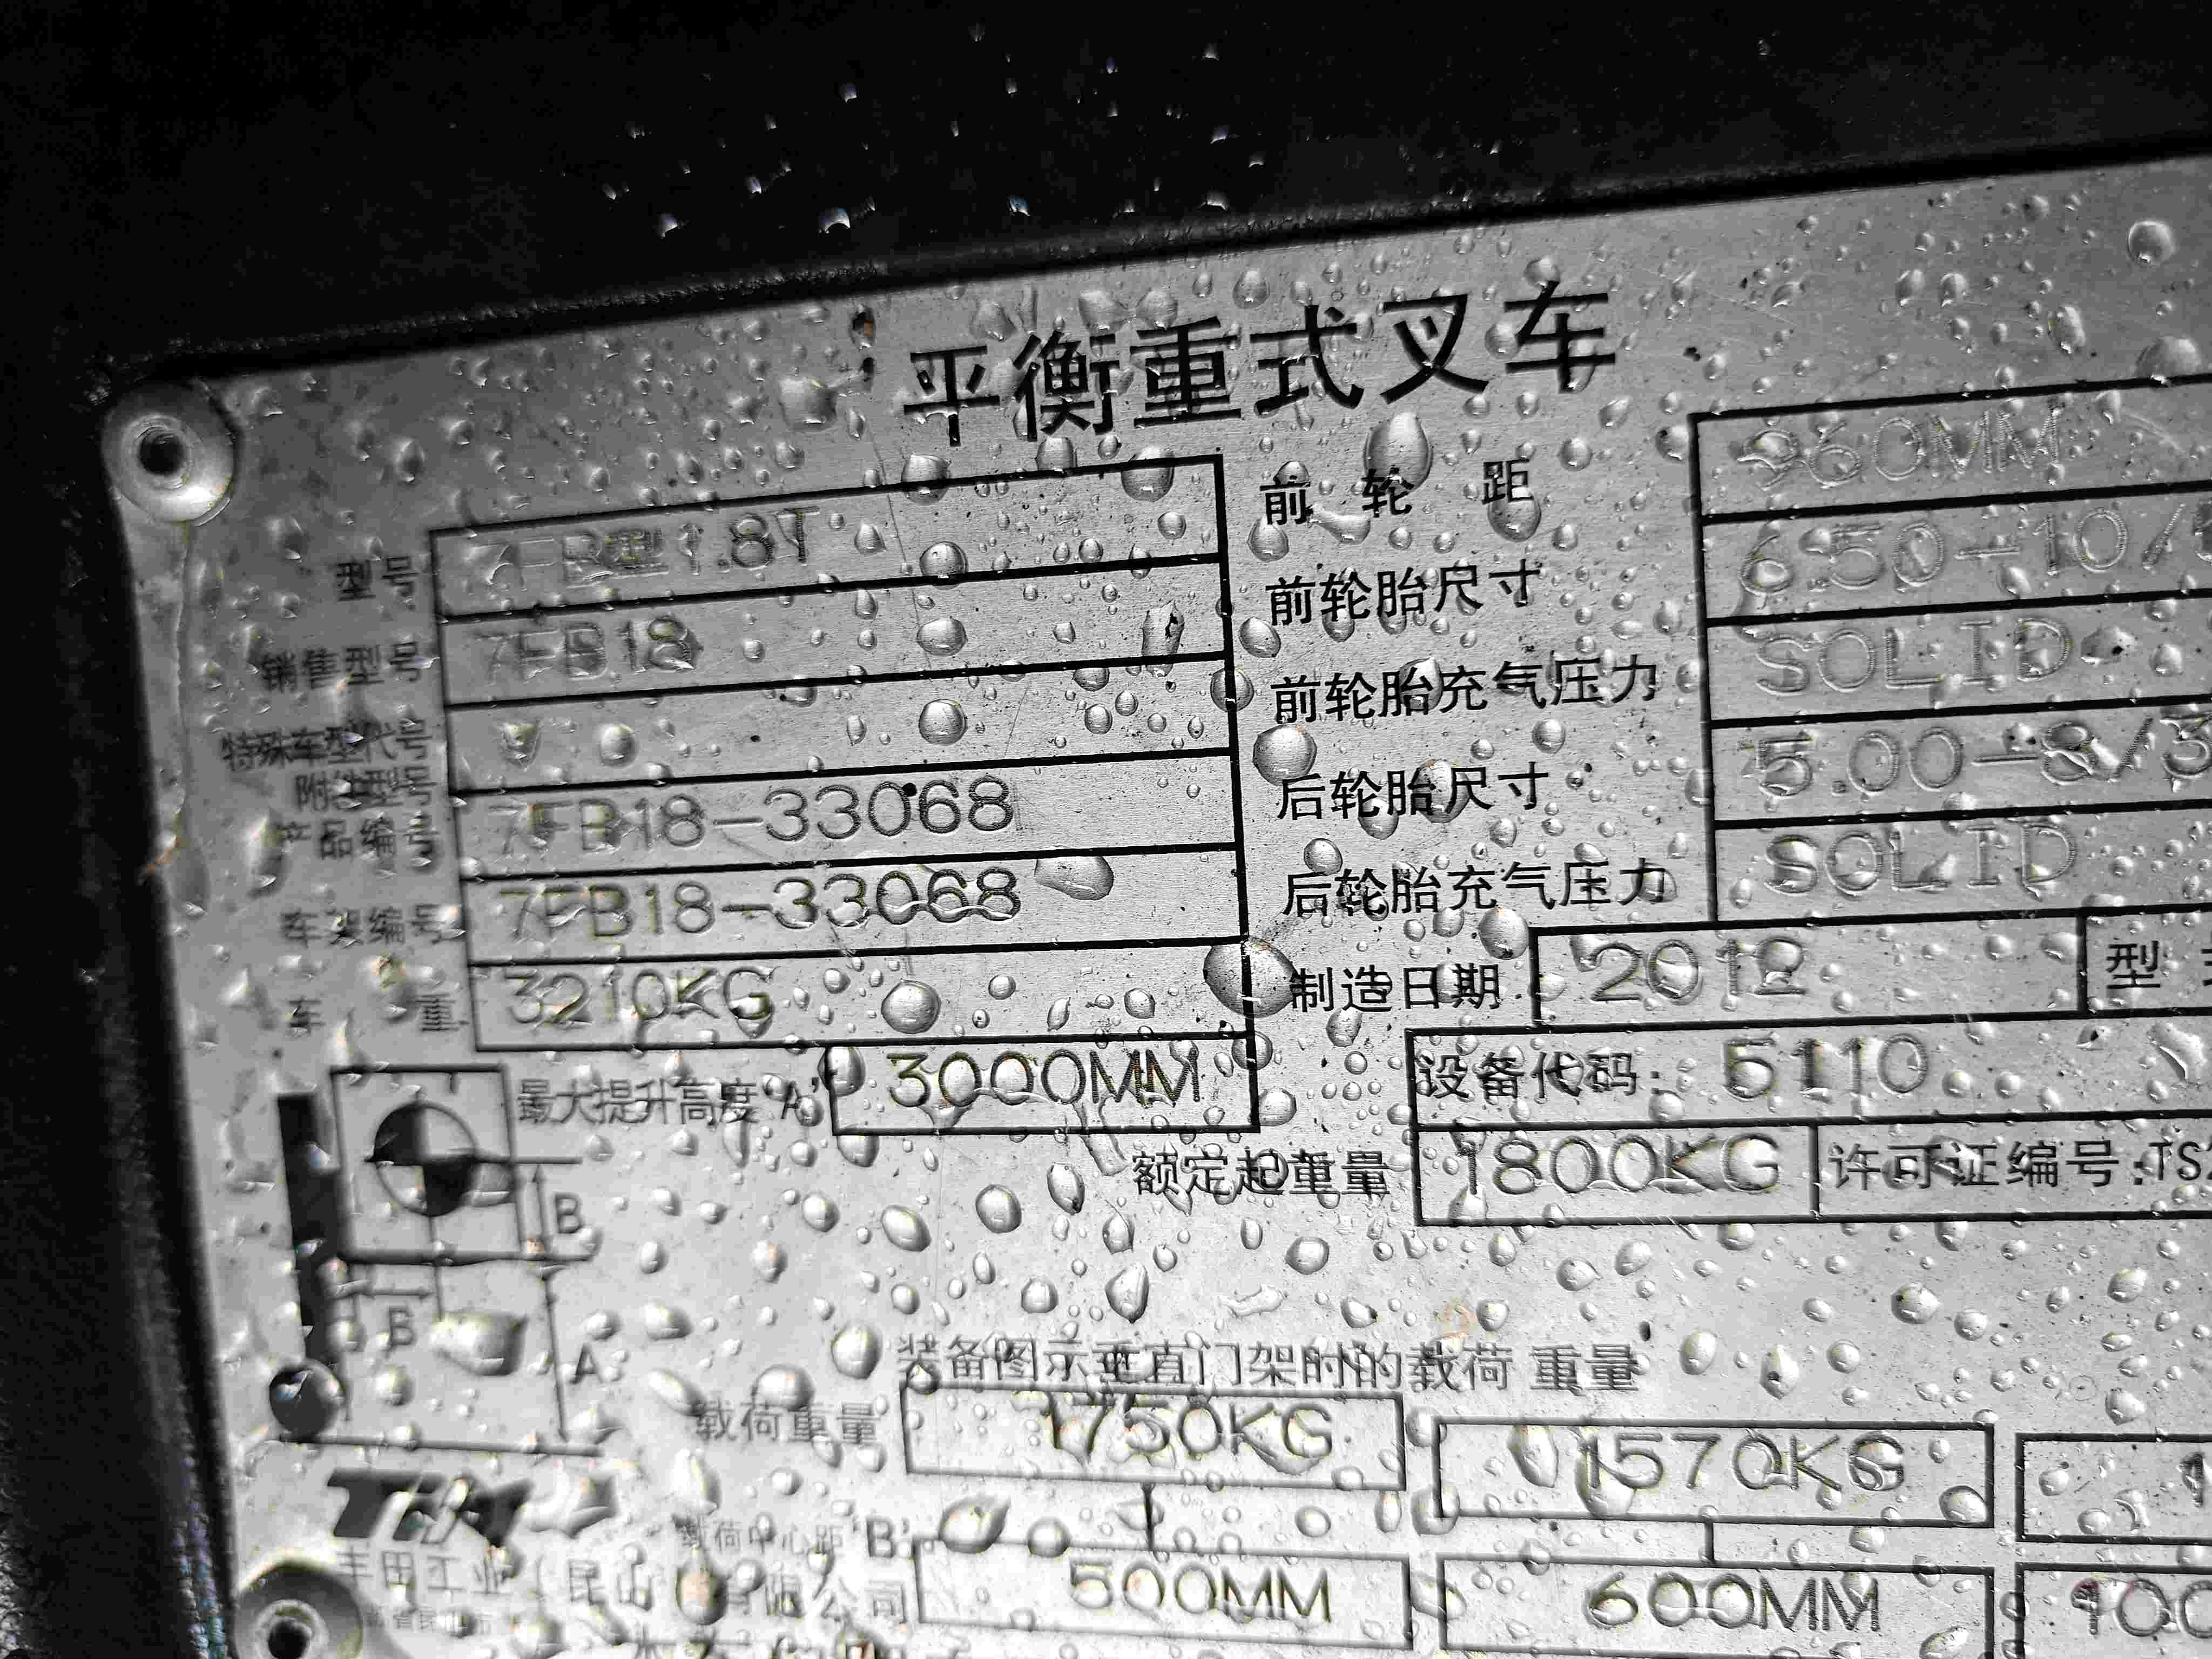 平衡重式叉车
型号 7FB型1.8T
销售型号 7FB18
特殊车型代号
附件型号
产品编号 7FB18-33068
车架编号 7FB18-33068
车 重 3210KG
最大提升高度'A' 3000MM
前 轮 距 960MM
前轮胎尺寸 6.50-10/5
前轮胎充气压力 SOLID
后轮胎尺寸 5.00-8/3
后轮胎充气压力 SOLID
制造日期 2012 型
设备代码: 5110
额定起重量 1800KG 许可证编号:TS
B
B
A
装备图示垂直门架时的载荷 重量
载荷重量 1750KG 1570KG
载荷中心距'B' 500MM 600MM
丰田工业(昆山)有限公司